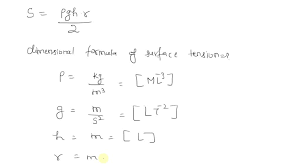 S = ρghr / 2
dimensional formula of surface tension =
ρ = kg / m³ = [ML⁻³]
g = m / s² = [LT⁻²]
h = m = [L]
r = m